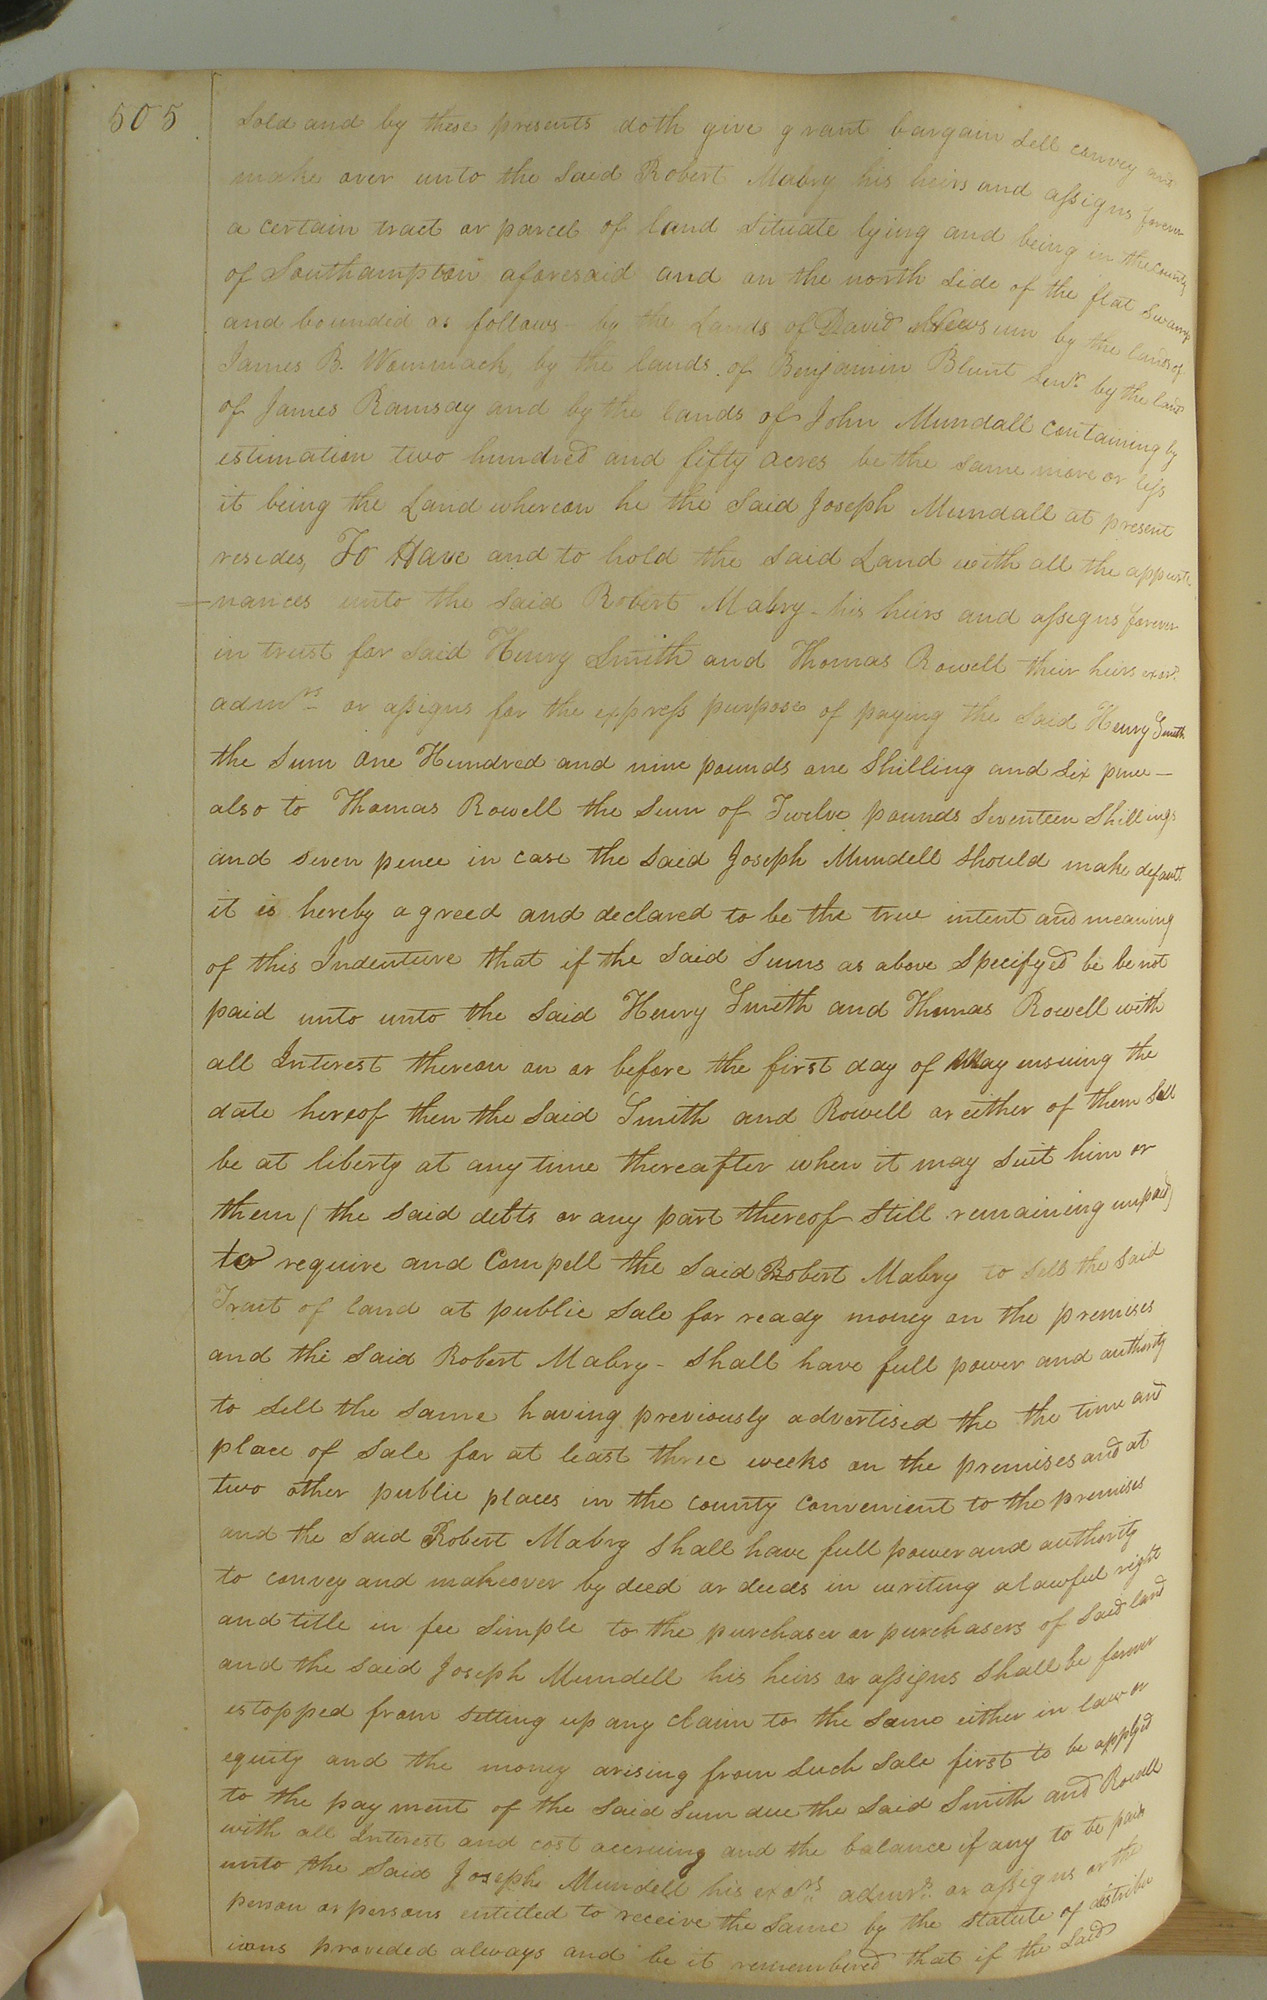 505
Sold and by these presents doth give grant bargain sell convey and
make over unto the said Robert Mabry his heirs and assigns forever
a certain tract or parcel of land situate lying and being in the county
of Southampton aforesaid and on the north side of the flat Swamp
and bounded as follows - by the Lands of David Newsum by the lands of
James B. Wommack, by the lands of Benjamin Blunt Senr. by the land
of James Ramsay and by the lands of John Mundall containing by
estimation two hundred and fifty acres be the same more or less
it being the Land whereon he the said Joseph Mundall at present
resides, To Have and to hold the said Land with all the appurte
=nances unto the said Robert Mabry - his heirs and assigns forever
in trust for said Henry Smith and Thomas Rowell their heirs exors.
admrs. or assigns for the express purpose of paying the said Henry Smith
the sum One Hundred and nine pounds one Shilling and six pence -
also to Thomas Rowell the sum of Twelve pounds Seventeen Shillings
and seven pence in case the said Joseph Mundell should make default.
it is hereby agreed and declared to be the true intent and meaning
of this Indenture that if the said sums as above Specifyed be be not
paid unto unto the said Henry Smith and Thomas Rowell with
all Interest thereon on or before the first day of May ensuing the
date hereof then the said Smith and Rowell or either of them Sall
be at liberty at any time thereafter when it may suit him or
them (the said debts or any part thereof still remaining unpaid)
to require and Compell the said Robert Mabry to sell the said
Tract of land at public sale for ready money on the premises
and the said Robert Mabry - shall have full power and authority
to sell the same having previously advertised the the time and
place of sale for at least three weeks on the premises and at
two other public places in the county convenient to the premises
and the said Robert Mabry shall have full power and authority
to convey and makeover by deed or deeds in writing a lawful right
and title in fee simple to the purchaser or purchasers of said land
and the said Joseph Mundell his heirs or assigns shall be forever
estopped from setting up any claim to the same either in law or
equity and the money arising from such sale first to be applyed
to the payment of the said sum due the said Smith and Rowell
with all Interest and cost accruing and the balance if any to be paid
unto the said Joseph Mundell his exors. admrs. or assigns or the
person or persons entitled to receive the same by the statute of distribu
ions provided always and be it remembered that if the said